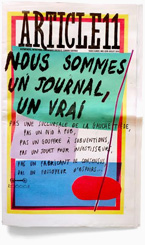 ARTICLE11
NOUS SOMMES
UN JOURNAL,
UN VRAI
PAS UNE SUCCURSALE DE LA GAUCHE
PAS UN NID À PUB,
PAS UN GOUFFRE À SUBVENTIONS,
PAS UN JOUET POUR INVESTISSEUR,
PAS UN FABRICANT DE CONSENSUS